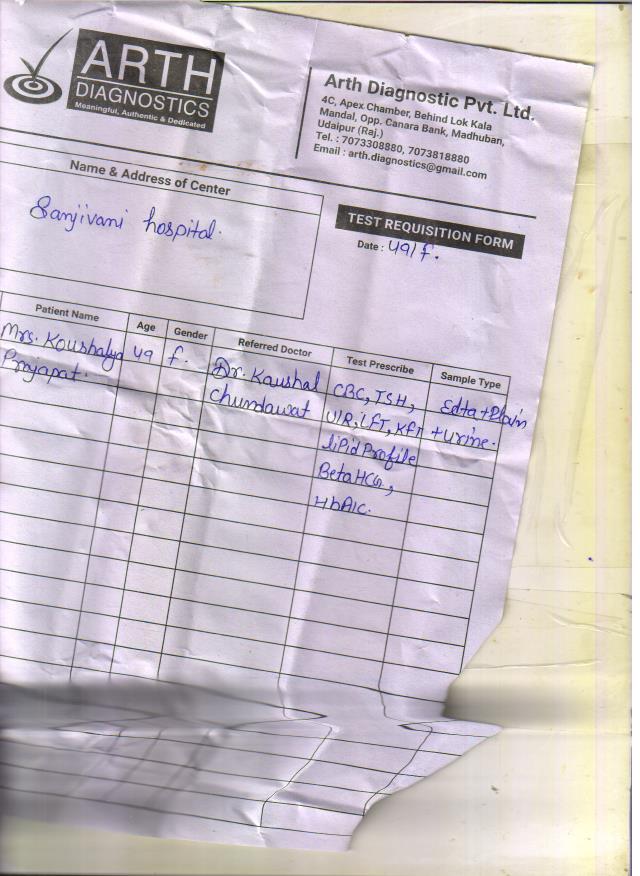 ARTH
DIAGNOSTICS
Meaningful, Authentic & Dedicated
Arth Diagnostic Pvt. Ltd.
4C, Apex Chamber, Behind Lok Kala
Mandal, Opp. Canara Bank, Madhuban,
Udaipur (Raj.)
Tel. : 7073308880, 7073818880
Email : arth.diagnostics@gmail.com
Name & Address of Center
Sanjivani hospital.
TEST REQUISITION FORM
Date : 49/f.
Patient Name Age Gender Referred Doctor Test Prescribe Sample Type
Mrs. Koushalya 49 f. Dr. Kaushal CBC, TSH, Edta+Plain
Prajapat. Chundawat U/R, LFT, KFT +Urine.
liPid Profile
Beta HCG,
HbA1c.